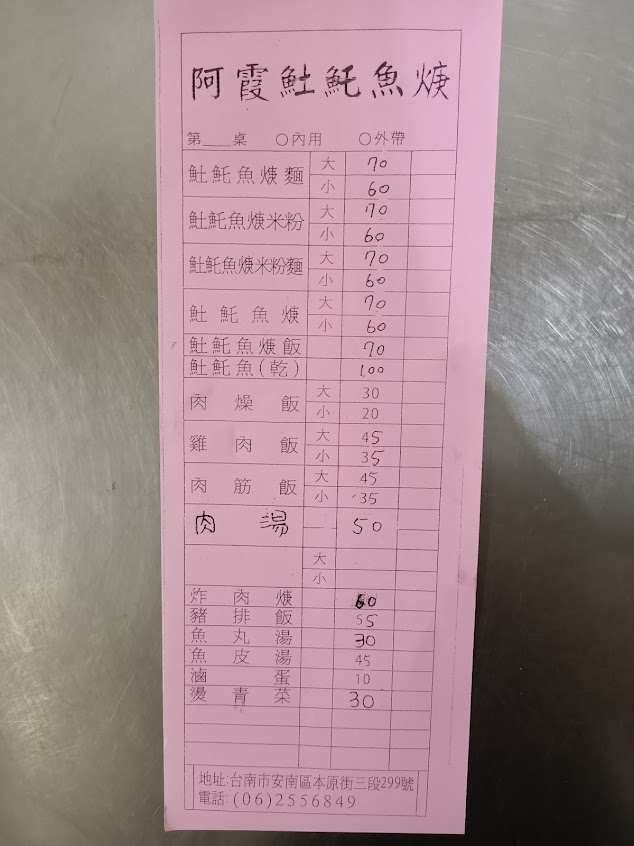 阿霞䰾魠魚焿
第___桌 ○內用 ○外帶
䰾魠魚焿麵 大 70
小 60
䰾魠魚焿米粉 大 70
小 60
䰾魠魚焿米粉麵 大 70
小 60
䰾魠魚焿 大 70
小 60
䰾魠魚焿飯 70
䰾魠魚(乾) 100
肉燥飯 大 30
小 20
雞肉飯 大 45
小 35
肉筋飯 大 45
小 35
肉湯 50
大
小
炸肉焿 60
豬排飯 55
魚丸湯 30
魚皮湯 45
滷蛋 10
燙青菜 30
地址:台南市安南區本原街三段299號
電話:(06)2556849